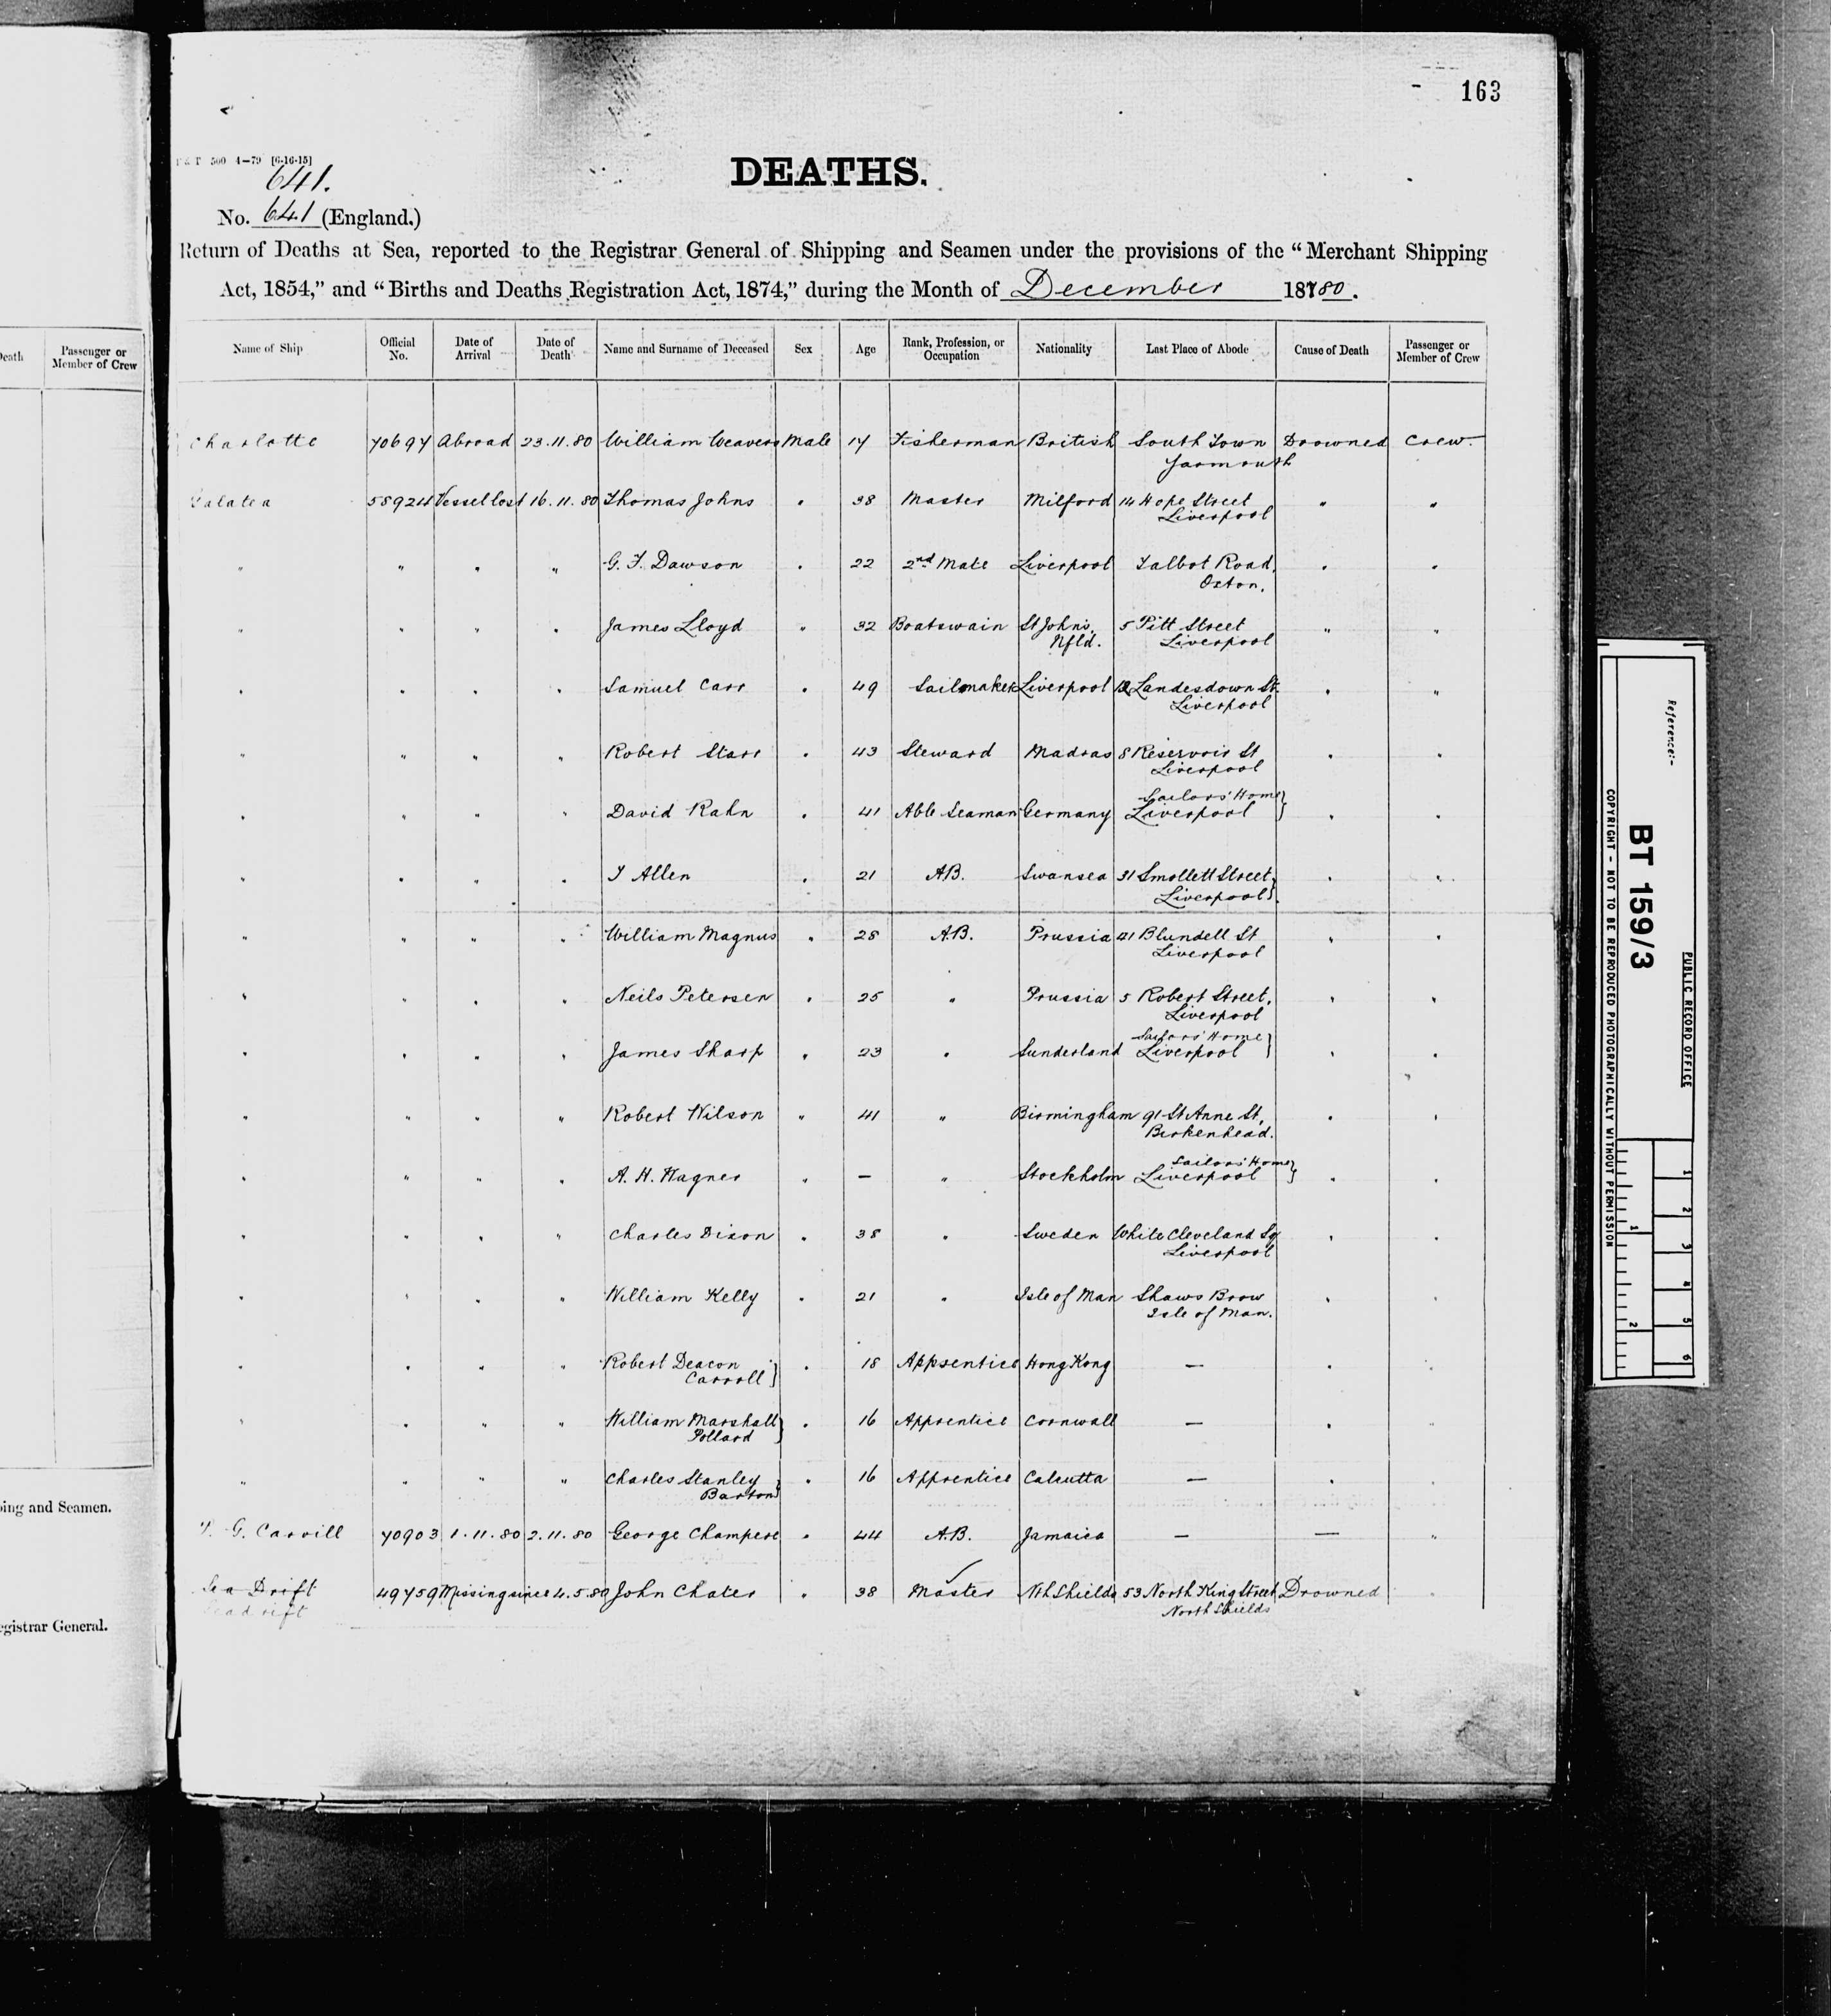 163
500 4-79 [6-16-15]
641.
DEATHS.
No. 641 (England.)
Return of Deaths at Sea, reported to the Registrar General of Shipping and Seamen under the provisions of the “Merchant Shipping
Act, 1854,” and “Births and Deaths Registration Act, 1874,” during the Month of December 18780.
Death Passenger or Member of Crew
Name of Ship Official No. Date of Arrival Date of Death Name and Surname of Deceased Sex Age Rank, Profession, or Occupation Nationality Last Place of Abode Cause of Death Passenger or Member of Crew
Charlotte 70697 Abroad 23.11.80 William Weavers Male 17 Fisherman British South Town Drowned Crew.
Yarmouth
Galatea 58924 Vessel lost 16.11.80 Thomas Johns " 38 Master Milford 14 Hope Street " "
Liverpool
" " " " G. F. Dawson " 22 2nd Mate Liverpool Talbot Road, " "
Oxton.
" " " " James Lloyd " 32 Boatswain St Johns, 5 Pitt Street " "
Nfld. Liverpool
" " " " Samuel Carr " 49 Sailmaker Liverpool Landesdown St. " "
Liverpool
" " " " Robert Starr " 43 Steward Madras 8 Reservoir St " "
Liverpool
Sailors' Home
" " " " David Rahn " 41 Able Seaman Germany Liverpool } " "
" " " " T Allen " 21 AB. Swansea 31 Smollett Street, " "
Liverpool }.
" " " " William Magnus " 28 A.B. Prussia 41 Blundell St " "
Liverpool
" " " " Neils Petersen " 25 " Prussia 5 Robert Street, " "
Liverpool
Sailors' Home
" " " " James Sharp " 23 " Sunderland Liverpool } " "
" " " " Robert Wilson " 41 " Birmingham 91 St Anne St, " "
Birkenhead.
Sailors' Home
" " " " A. H. Wagner " — " Stockholm Liverpool } " "
" " " " Charles Dixon " 38 " Sweden White Cleveland Sq " "
Liverpool
" " " " William Kelly " 21 " Isle of Man Shaws Brow " "
Isle of Man.
" " " " Robert Deacon " 18 Apprentice Hong Kong — " "
Carroll }
" " " " William Marshall " 16 Apprentice Cornwall — " "
Pollard }
" " " " Charles Stanley " 16 Apprentice Calcutta — " "
Barton }
G. Carvill 70903 1.11.80 2.11.80 George Champere " 44 A.B. Jamaica — — "
Sea Drift 49759 Missing since 4.5.80 John Chater " 38 Master Nth Shields 53 North King Street Drowned "
Seadrift North Shields
ping and Seamen.
egistrar General.
Reference:-
PUBLIC RECORD OFFICE
BT 159/3
COPYRIGHT - NOT TO BE REPRODUCED PHOTOGRAPHICALLY WITHOUT PERMISSION
1 2 3 4 5 6
1 2